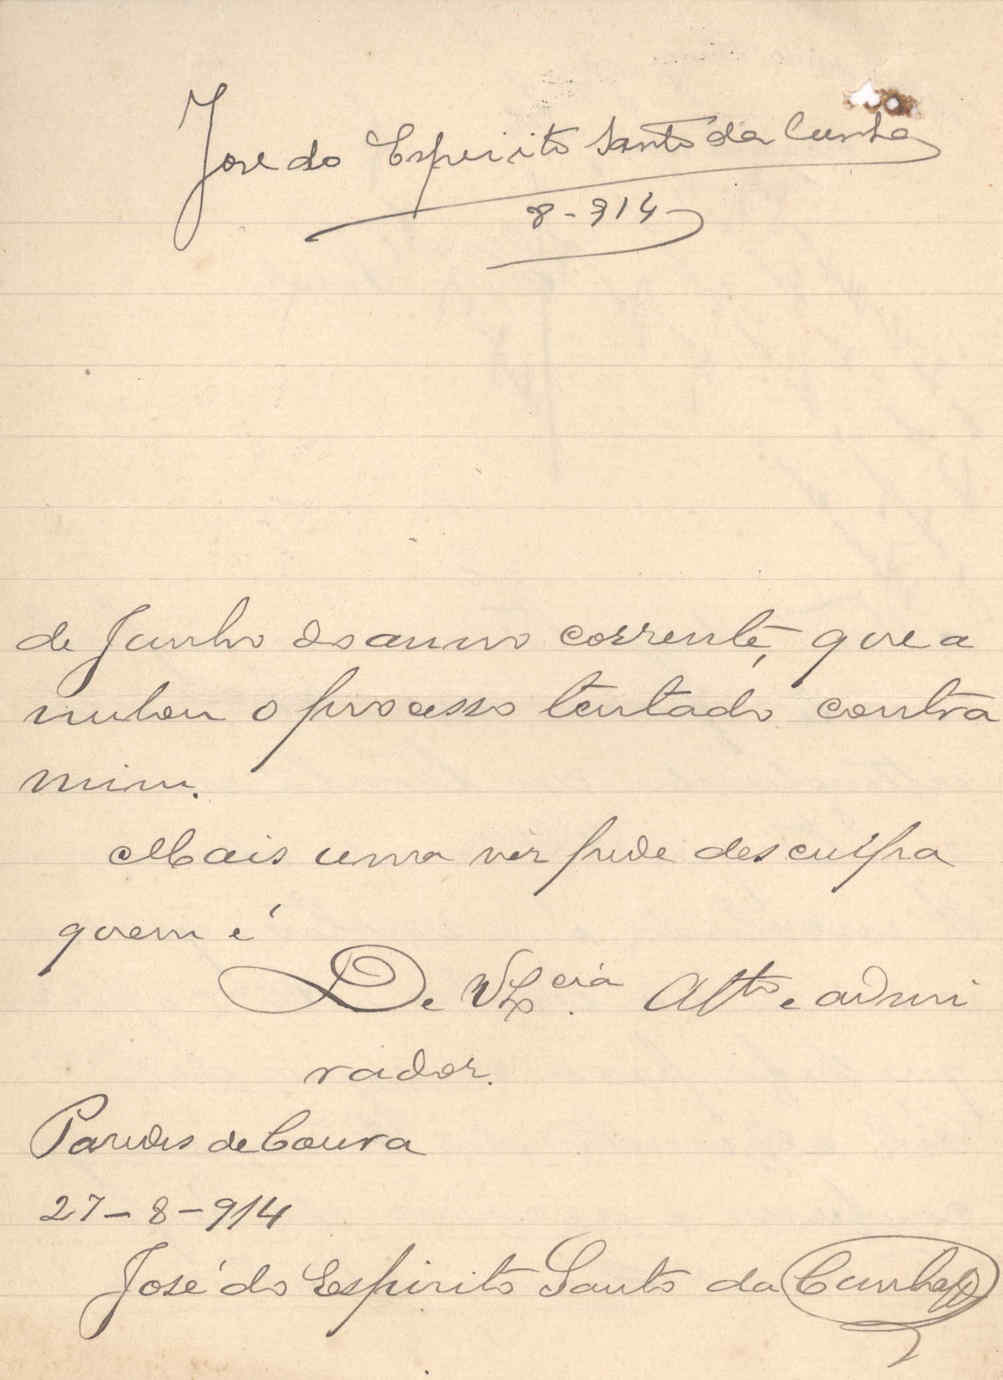 José do Espirito Santo da Cunha
8-914
de Junho do anno corrente, que a
nulou o processo tentado contra
mim.
Mais uma vez pede desculpa
quem é
De V. Ex.cia Att.to e admi
rador.
Paredes de Coura
27-8-914
José do Espirito Santo da Cunha